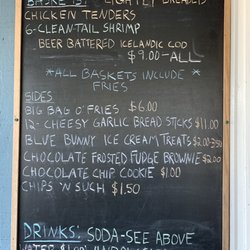 BASKETS: LIGHTLY BREADED
CHICKEN TENDERS
6-CLEAN-TAIL SHRIMP
BEER BATTERED ICELANDIC COD
$9.00-ALL
*ALL BASKETS INCLUDE
FRIES
SIDES
BIG BAG O' FRIES $6.00
12- CHEESY GARLIC BREAD STICKS $11.00
BLUE BUNNY ICE CREAM TREATS $2.00-3.50
CHOCOLATE FROSTED FUDGE BROWNIE $2.00
CHOCOLATE CHIP COOKIE $1.00
CHIPS 'N SUCH $1.50
DRINKS: SODA-SEE ABOVE
WATER $1.00